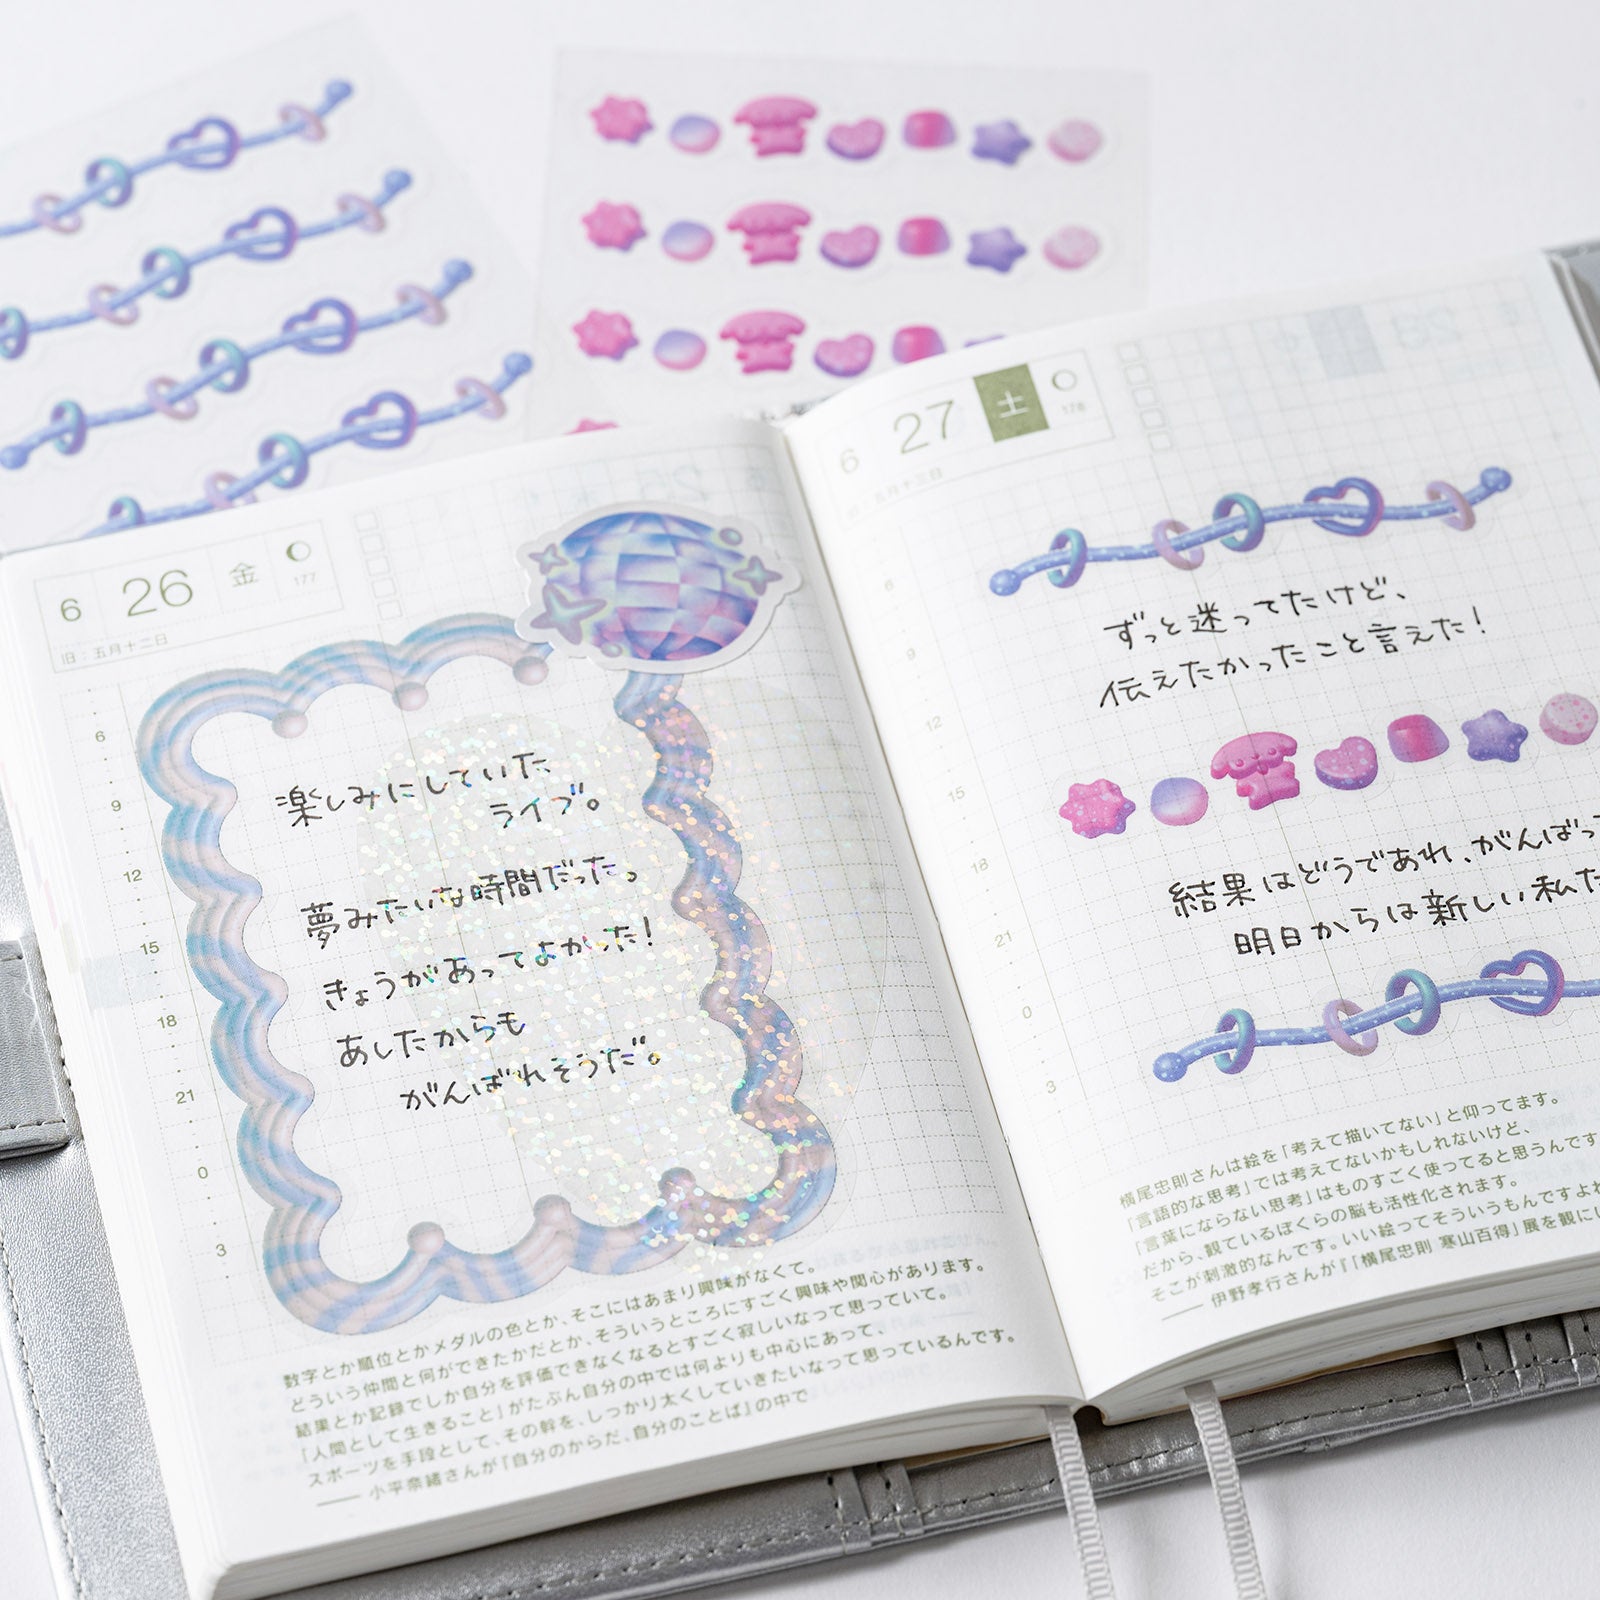 6 26 金
177
旧：五月十二日
6
9
12
15
18
21
0
3
楽しみにしていた
ライブ。
夢みたいな時間だった。
きょうがあってよかった！
あしたからも
がんばれそうだ。
数字とか順位とかメダルの色とか、そこにはあまり興味がなくて。
どういう仲間と何ができたかだとか、そういうところにすごく興味や関心があります。
結果とか記録でしか自分を評価できなくなるとすごく寂しいなって思っていて。
「人間として生きること」がたぶん自分の中では何よりも中心にあって、
スポーツを手段として、その幹を、しっかり太くしていきたいなって思っているんです。
—— 小平奈緒さんが『自分のからだ、自分のことば』の中で
6 27 土
178
旧：五月十三日
6
9
12
15
18
21
0
3
ずっと迷ってたけど、
伝えたかったこと言えた！
結果はどうであれ、がんばっ
明日からは新しい私だ
横尾忠則さんは絵を「考えて描いてない」と仰ってます。
「言語的な思考」では考えてないかもしれないけど、
「言葉にならない思考」はものすごく使ってると思うんです
だから、観ているぼくらの脳も活性化されます。
そこが刺激的なんです。いい絵ってそういうもんですよね
—— 伊野孝行さんが『「横尾忠則 寒山百得」展を観に